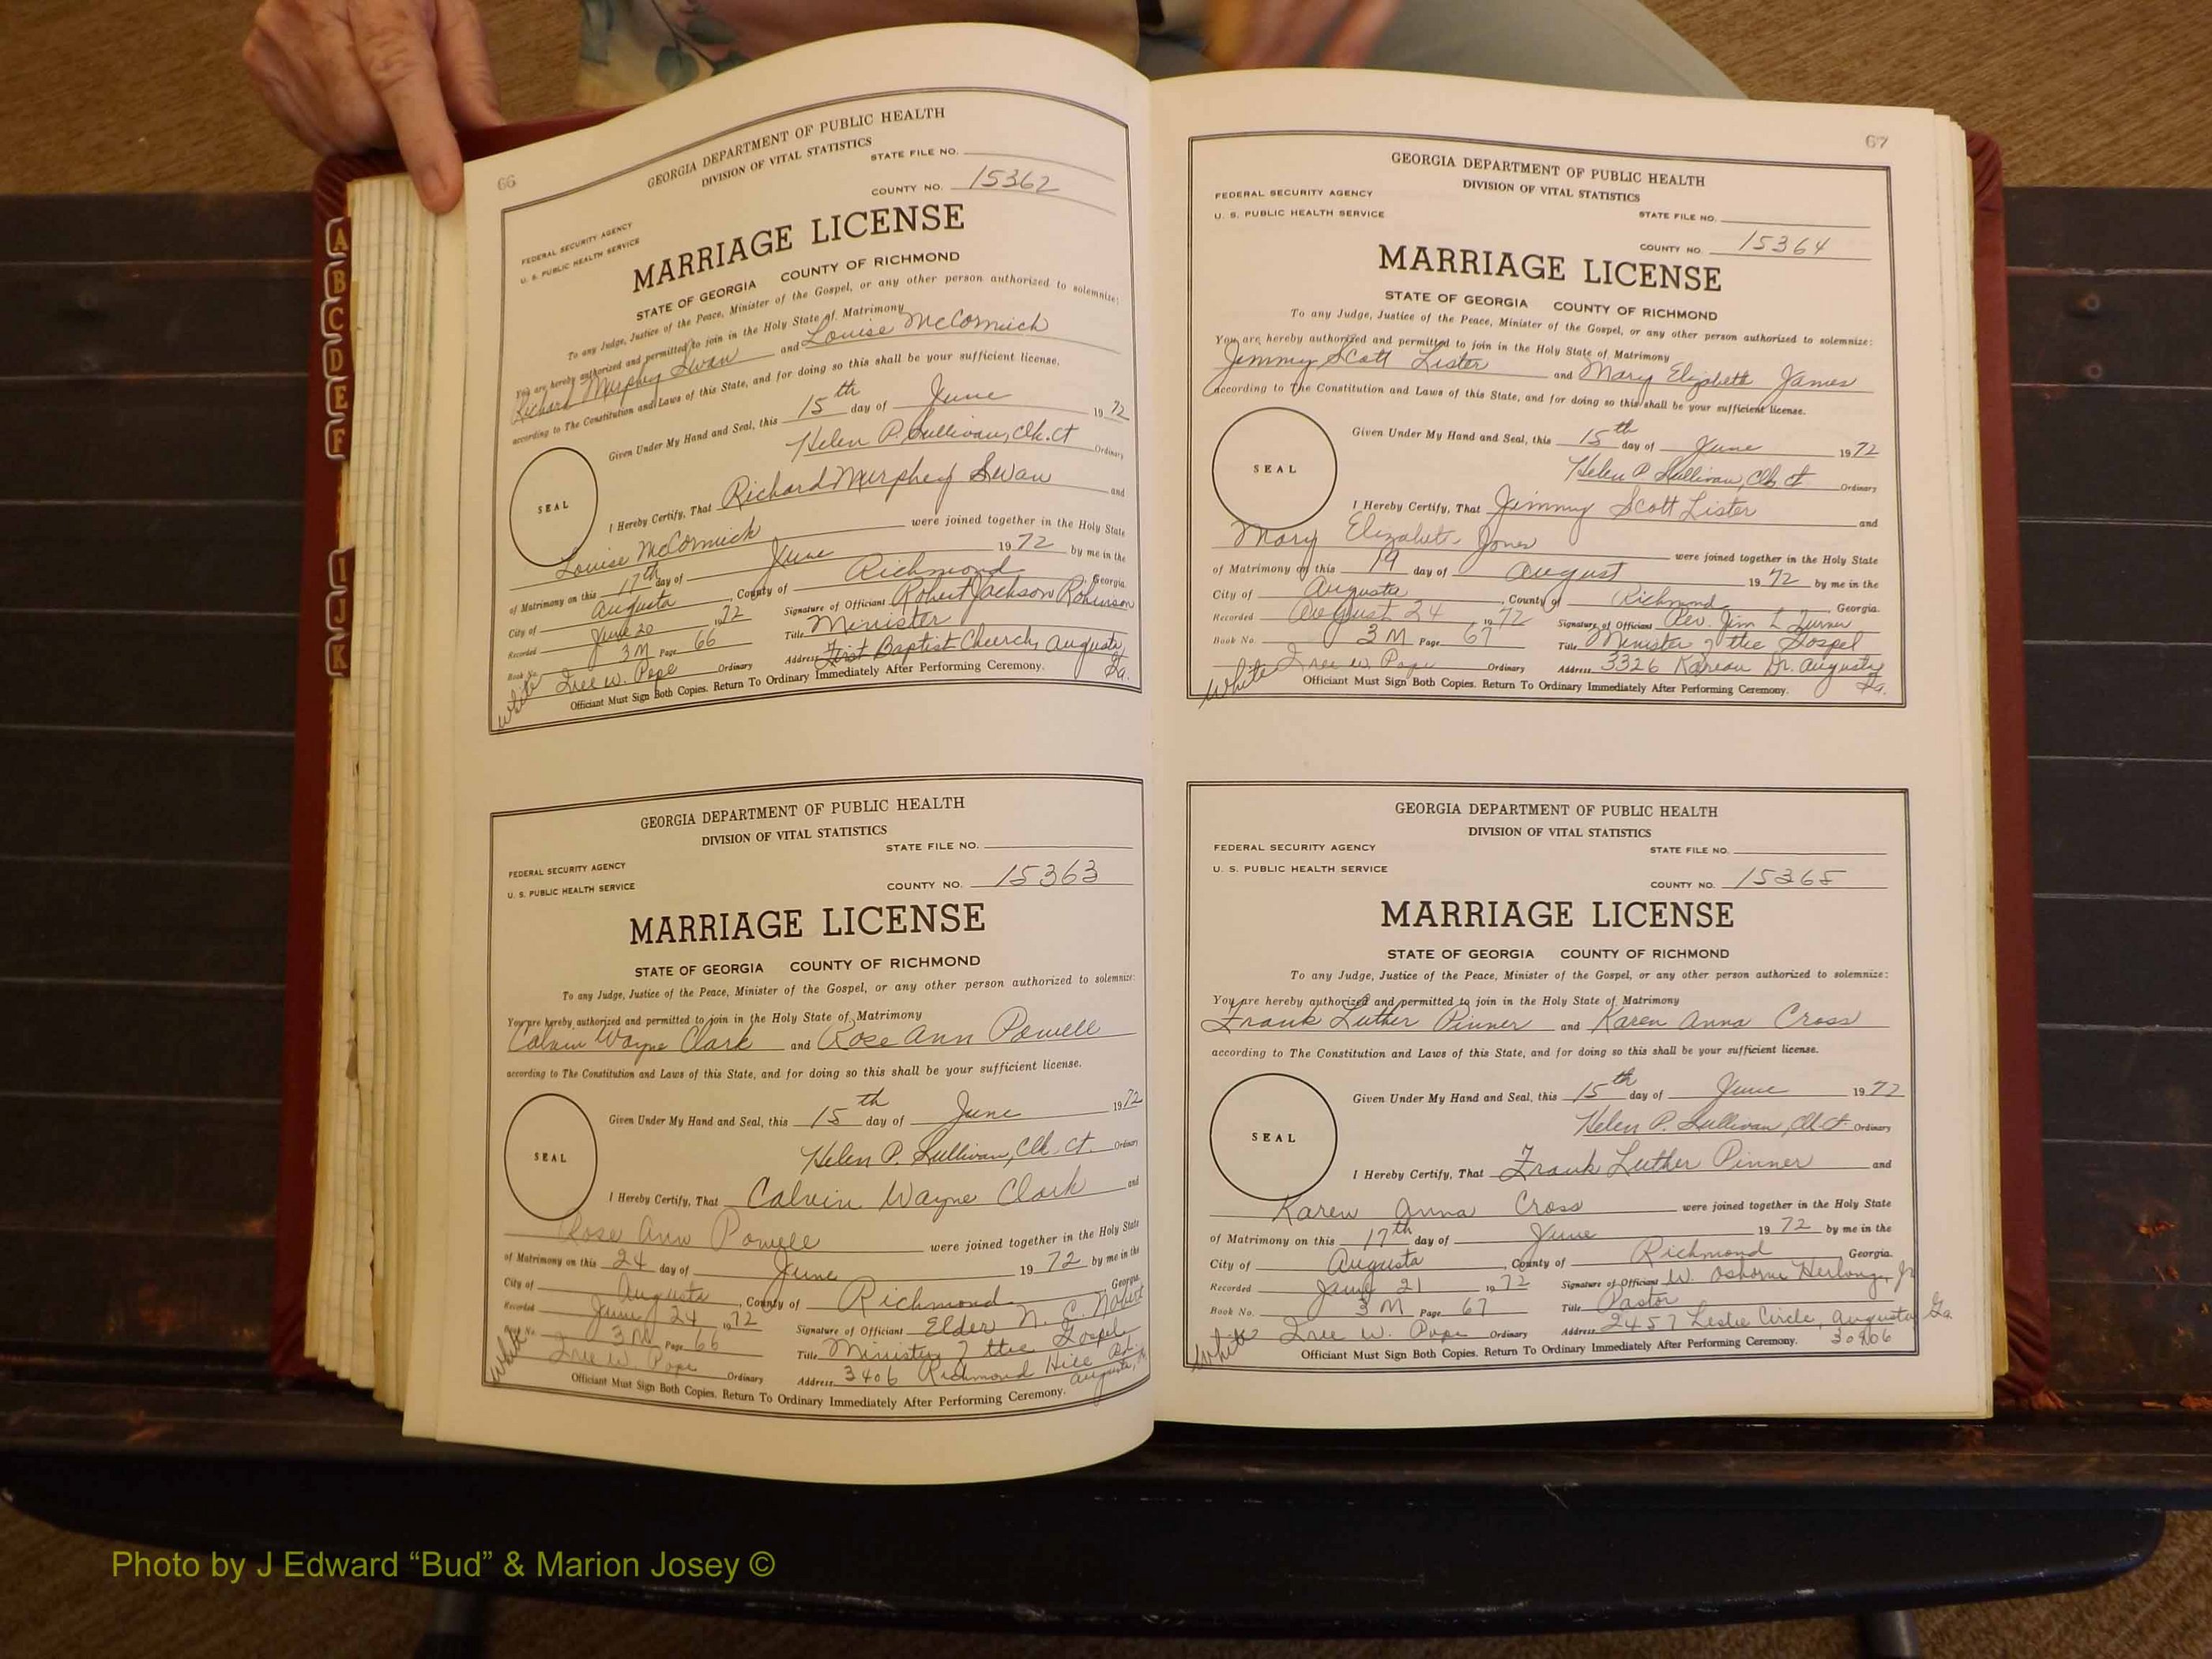 A
B
C
D
E
F
I
J
K
66
GEORGIA DEPARTMENT OF PUBLIC HEALTH
DIVISION OF VITAL STATISTICS
STATE FILE NO.
COUNTY NO. 15362
FEDERAL SECURITY AGENCY
U. S. PUBLIC HEALTH SERVICE
MARRIAGE LICENSE
STATE OF GEORGIA COUNTY OF RICHMOND
To any Judge, Justice of the Peace, Minister of the Gospel, or any other person authorized to solemnize:
You are hereby authorized and permitted to join in the Holy State of Matrimony
Richard Murphey Swan and Louise McCormick
according to The Constitution and Laws of this State, and for doing so this shall be your sufficient license.
Given Under My Hand and Seal, this 15th day of June 1972
Helen P. Sullivan, Clk. Ct Ordinary
SEAL
I Hereby Certify, That Richard Murphey Swan and
Louise McCormick were joined together in the Holy State
of Matrimony on this 17th day of June 1972 by me in the
City of Augusta, County of Richmond Georgia.
Recorded June 20 1972 Signature of Officiant Robert Jackson Robinson
Book No. 3M Page 66 Title Minister
Iree W. Pope Ordinary Address First Baptist Church, Augusta, Ga.
White
Officiant Must Sign Both Copies. Return To Ordinary Immediately After Performing Ceremony.
GEORGIA DEPARTMENT OF PUBLIC HEALTH
DIVISION OF VITAL STATISTICS
STATE FILE NO.
FEDERAL SECURITY AGENCY
U. S. PUBLIC HEALTH SERVICE
COUNTY NO. 15363
MARRIAGE LICENSE
STATE OF GEORGIA COUNTY OF RICHMOND
To any Judge, Justice of the Peace, Minister of the Gospel, or any other person authorized to solemnize:
You are hereby authorized and permitted to join in the Holy State of Matrimony
Calvin Wayne Clark and Rose Ann Powell
according to The Constitution and Laws of this State, and for doing so this shall be your sufficient license.
Given Under My Hand and Seal, this 15th day of June 1972
Helen P. Sullivan, Clk. Ct. Ordinary
SEAL
I Hereby Certify, That Calvin Wayne Clark and
Rose Ann Powell were joined together in the Holy State
of Matrimony on this 24 day of June 1972 by me in the
City of Augusta, County of Richmond Georgia.
Recorded June 24 1972 Signature of Officiant Elder N. C.
Book No. 3M Page 66 Title Minister of the Gospel
Iree W. Pope Ordinary Address 3406 Richmond Hill Rd. Augusta,
White
Officiant Must Sign Both Copies. Return To Ordinary Immediately After Performing Ceremony.
67
GEORGIA DEPARTMENT OF PUBLIC HEALTH
DIVISION OF VITAL STATISTICS
FEDERAL SECURITY AGENCY
U. S. PUBLIC HEALTH SERVICE
STATE FILE NO.
COUNTY NO. 15364
MARRIAGE LICENSE
STATE OF GEORGIA COUNTY OF RICHMOND
To any Judge, Justice of the Peace, Minister of the Gospel, or any other person authorized to solemnize:
You are hereby authorized and permitted to join in the Holy State of Matrimony
Jimmy Scott Lister and Mary Elizabeth James
according to The Constitution and Laws of this State, and for doing so this shall be your sufficient license.
Given Under My Hand and Seal, this 15th day of June 1972
Helen P. Sullivan, Clk Ct Ordinary
SEAL
I Hereby Certify, That Jimmy Scott Lister and
Mary Elizabeth Jones were joined together in the Holy State
of Matrimony on this 19 day of August 1972 by me in the
City of Augusta, County of Richmond, Georgia.
Recorded August 24 1972 Signature of Officiant Rev. Jim L Turner
Book No. 3M Page 67 Title Minister of the Gospel
Iree W. Pope Ordinary Address 3326 Dr. Augusta Ga.
White
Officiant Must Sign Both Copies. Return To Ordinary Immediately After Performing Ceremony.
GEORGIA DEPARTMENT OF PUBLIC HEALTH
DIVISION OF VITAL STATISTICS
FEDERAL SECURITY AGENCY
STATE FILE NO.
U. S. PUBLIC HEALTH SERVICE
COUNTY NO. 15365
MARRIAGE LICENSE
STATE OF GEORGIA COUNTY OF RICHMOND
To any Judge, Justice of the Peace, Minister of the Gospel, or any other person authorized to solemnize:
You are hereby authorized and permitted to join in the Holy State of Matrimony
Frank Luther Pinner and Karen Anna Cross
according to The Constitution and Laws of this State, and for doing so this shall be your sufficient license.
Given Under My Hand and Seal, this 15th day of June 1972
Helen P. Sullivan, Clk Ct. Ordinary
SEAL
I Hereby Certify, That Frank Luther Pinner and
Karen Anna Cross were joined together in the Holy State
of Matrimony on this 17th day of June 1972 by me in the
City of Augusta, County of Richmond Georgia.
Recorded June 21 1972 Signature of Officiant W. Osborne Herlong, Jr
Book No. 3M Page 67 Title Pastor
Iree W. Pope Ordinary Address 2457 Leslie Circle, Augusta, Ga.
30906
White
Officiant Must Sign Both Copies. Return To Ordinary Immediately After Performing Ceremony.
Photo by J Edward “Bud” & Marion Josey ©